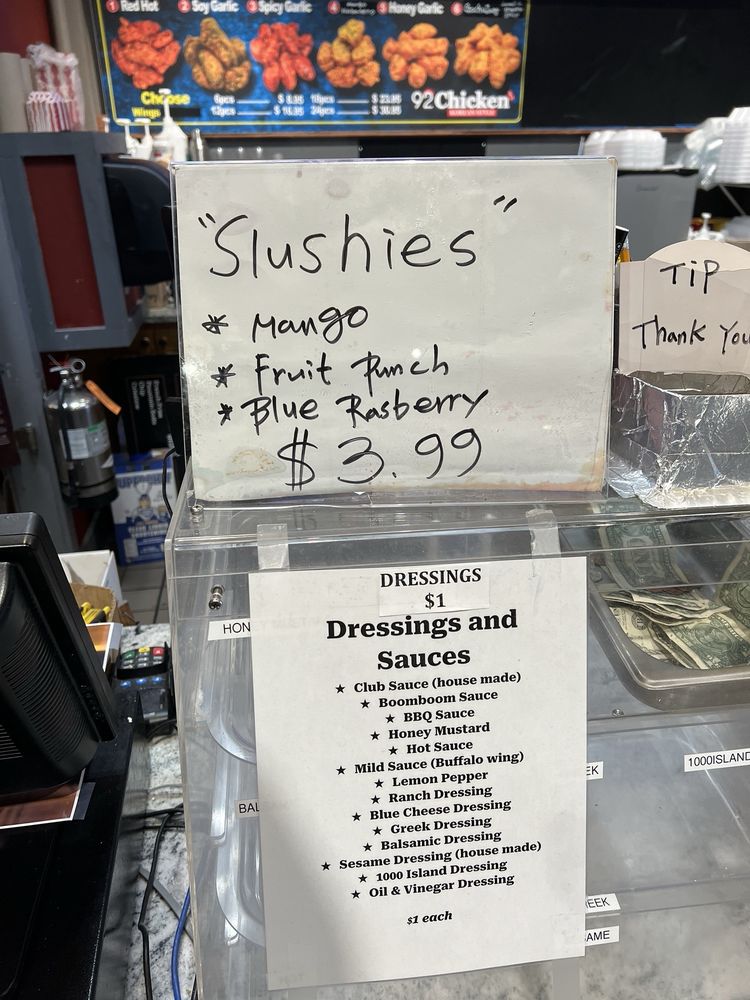 1 Red Hot 2 Soy Garlic 3 Spicy Garlic 4 5 Honey Garlic 6
Choose
Wings
92Chicken
"Slushies"
* Mango
* Fruit Punch
* Blue Rasberry
$3.99
TiP
Thank You
DRESSINGS
$1
Dressings and
Sauces
★ Club Sauce (house made)
★ Boomboom Sauce
★ BBQ Sauce
★ Honey Mustard
★ Hot Sauce
★ Mild Sauce (Buffalo wing)
★ Lemon Pepper
★ Ranch Dressing
★ Blue Cheese Dressing
★ Greek Dressing
★ Balsamic Dressing
★ Sesame Dressing (house made)
★ 1000 Island Dressing
★ Oil & Vinegar Dressing
$1 each
HON
BAL
EK
1000ISLAND
EEK
AME